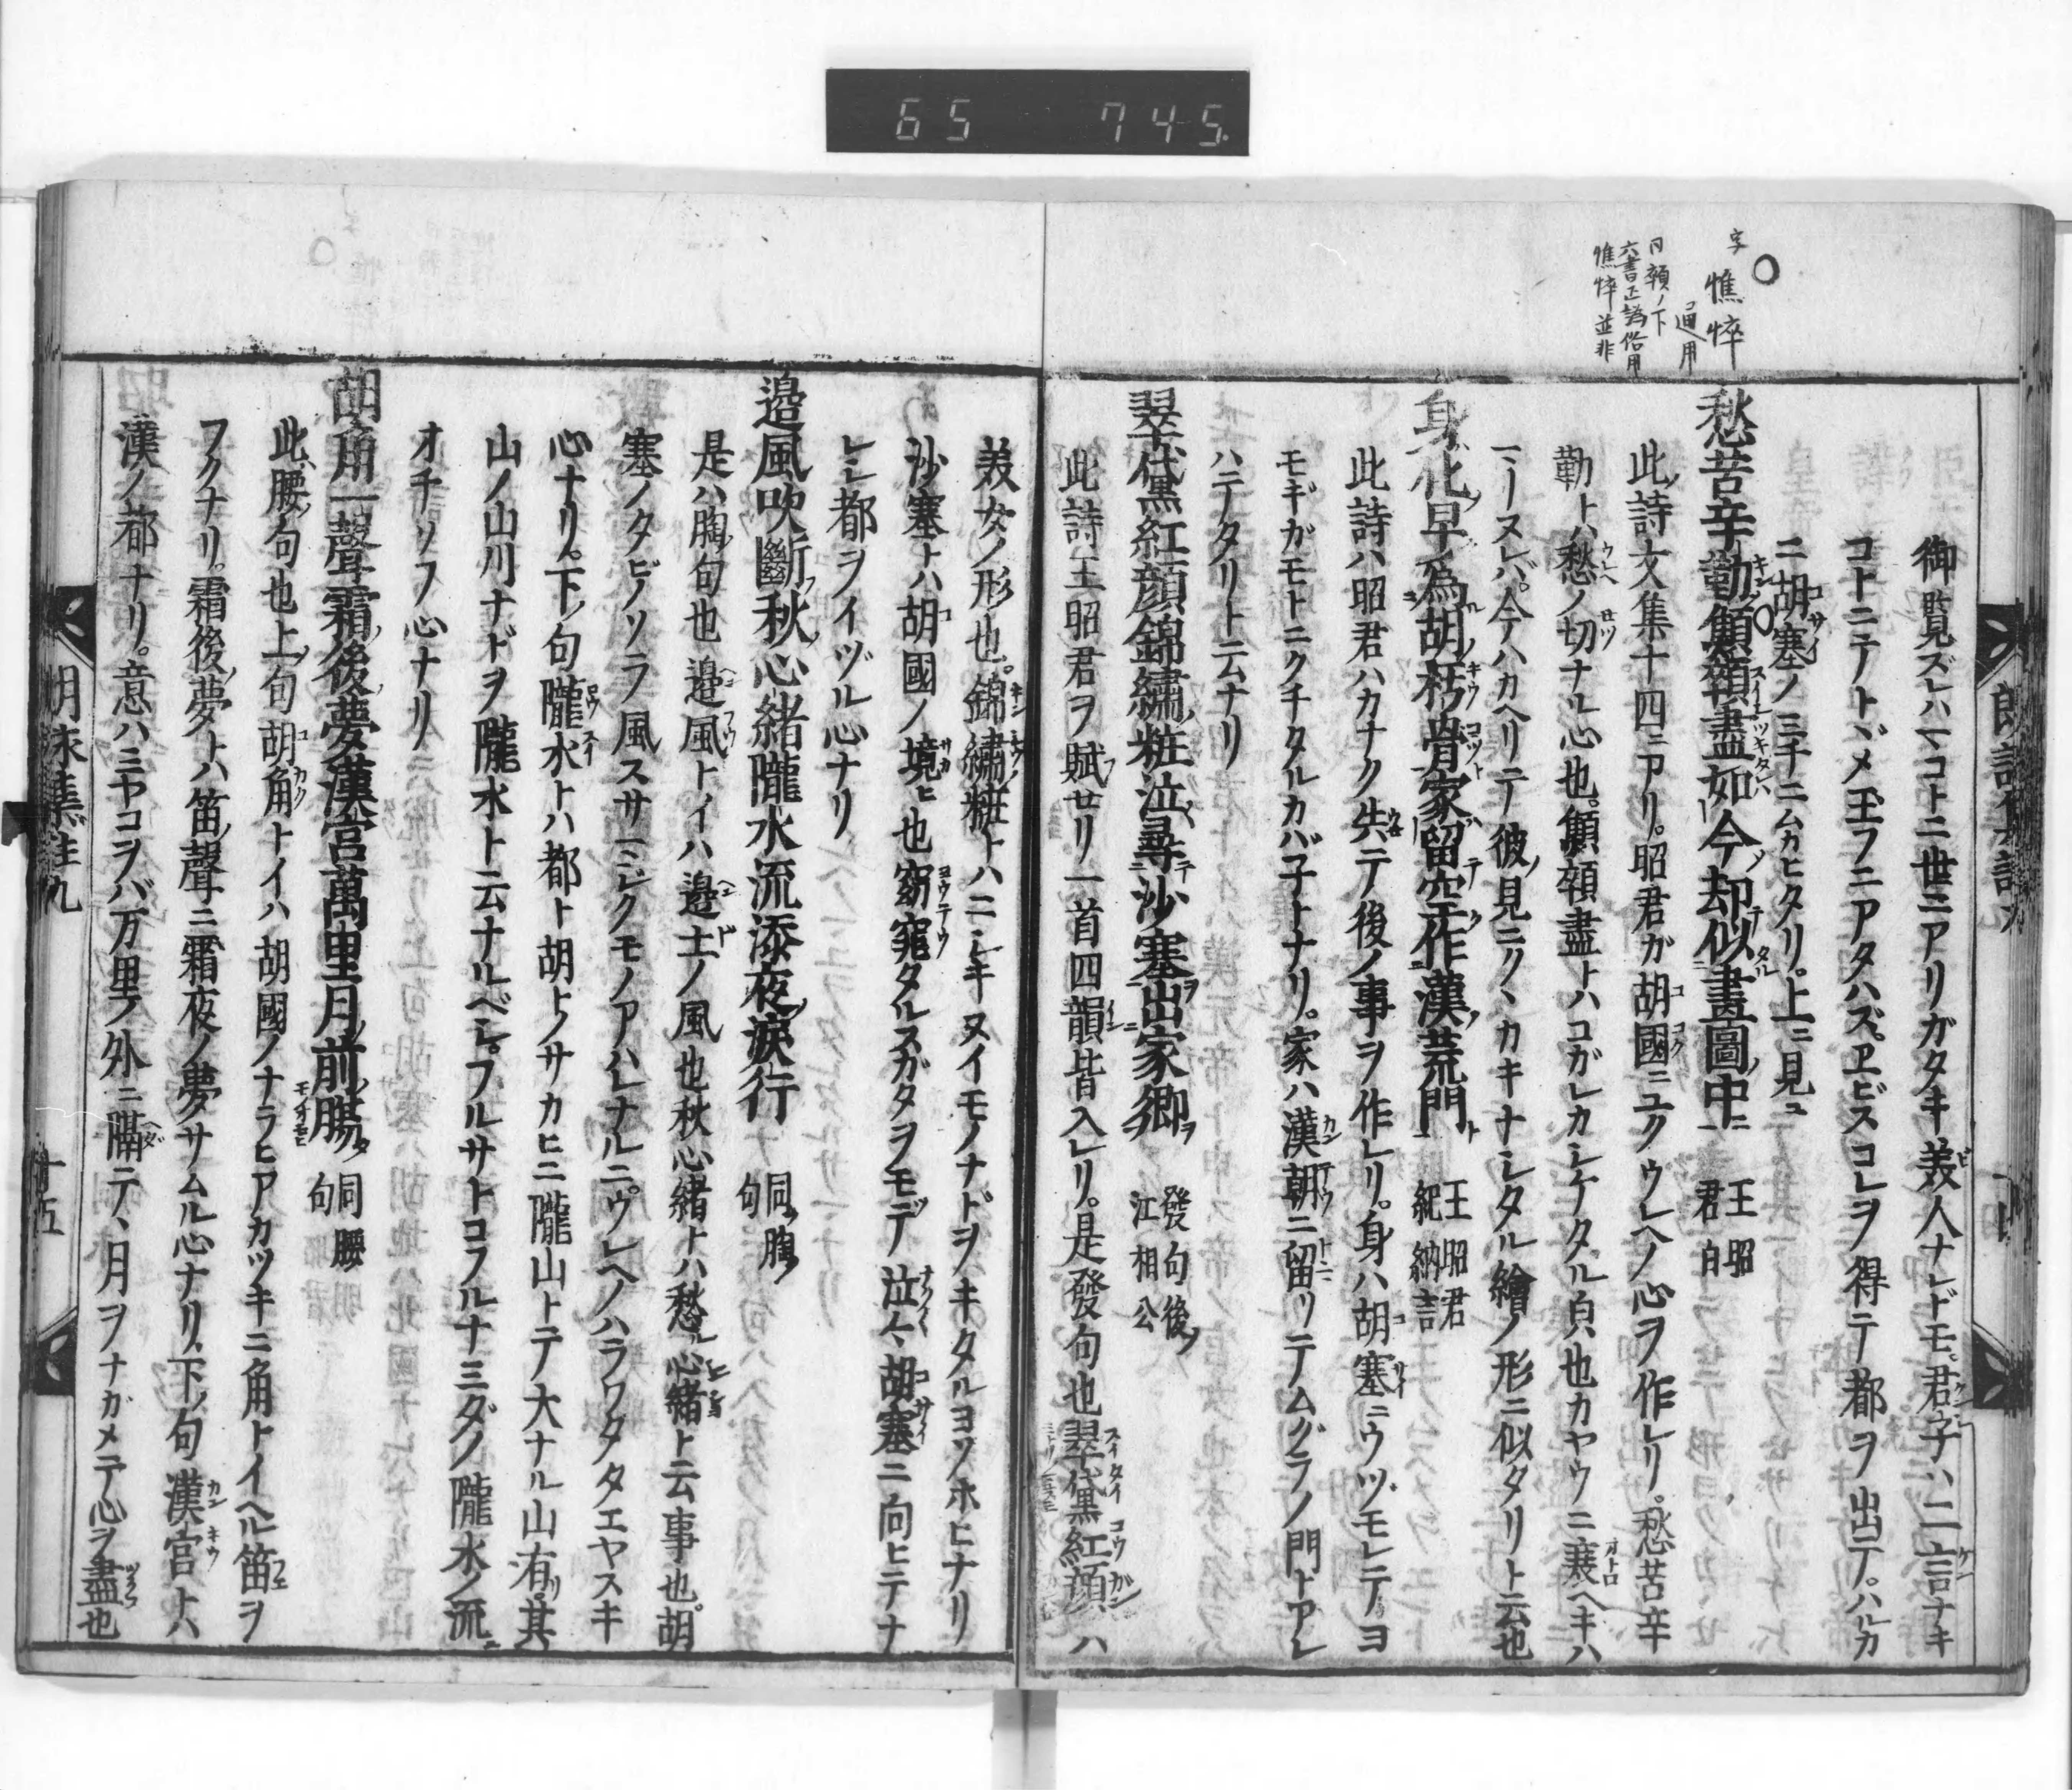 65 745.
字 憔悴
通用
同顇ノ下
六書正譌俗用
憔悴並非
御覧ズレハマコトニ世ニアリガタキ美人ナレドモ。君子ハ二言ナキ
コトニテトヾメ玉フニアタハズ。ヱビスコレヲ得テ都ヲ出テ。ハルカ
ニ胡塞ノ三千ニムカヒタリ。上ニ見ユ
愁苦辛勤顦顇盡如今却似畫圖中 王昭君 白
此詩文集十四ニアリ。昭君ガ胡國ニユクウレヘノ心ヲ作レリ。愁苦辛
勤トハ愁ノ切ナル心也。顦顇盡トハコガレカシケタル皃也カヤウニ衰ヘキハ
マーヌレバ。今ハカヘリテ彼見ニクヽカキナシタル繪ノ形ニ似タリト云也
身化早為胡朽骨家留空作漢荒門 王昭君 紀納言
此詩ハ昭君ハカナク失テ後ノ事ヲ作レリ。身ハ胡塞ニウヅモレテヨ
モギガモトニクチタルカバ子トナリ。家ハ漢朝ニ留リテムグラノ門トアレ
ハテタリト云ナリ
翠黛紅顔錦繡粧泣尋沙塞出家鄉 發句後ノ江相公
此詩王昭君ヲ賦セリ一首四韻皆入レリ。是發句也翠黛紅顔ハ
美女ノ形也。錦繡粧トハニシキヌイモノナドヲキタルヨソホヒナリ
沙塞トハ胡國ノ境ヒ也窈窕タルスガタヲモデ泣々胡塞ニ向ヒテナ
レシ都ヲイヅル心ナリ
邉風吹斷秋心緒隴水流添夜淚行 同胸句
是ハ胸句也邉風トイハ邉土ノ風也秋心緒トハ愁心緒ト云事也。胡
塞ノタビノソラノ風スサマシクモノアハレナルニ。ウレヘノハラワタタエヤスキ
心ナリ。下ノ句隴水トハ都ト胡トノサカヒニ隴山トテ大ナル山有。其
山ノ山川ナドヲ隴水ト云ナルベシ。フルサトコフルナミダノ隴水ノ流ニ
オチソフ心ナリ
胡角一聲霜後夢漢宮萬里月前膓 同腰句
此腰句也上句胡角トイハ胡國ノナラヒアカツキニ角トイヘル笛ヲ
フクナリ。霜後夢トハ笛聲ニ霜夜ノ夢サムル心ナリ。下ノ句漢宮トハ
漢ノ都ナリ。意ハミヤコヲバ万里ノ外ニ隔テ、月ヲナガメテ心ヲ盡也
朗詠集註九
十五